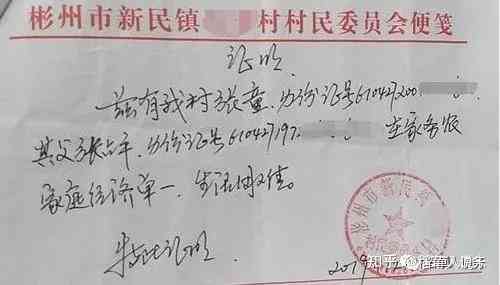 彬州市新民镇 村村民委员会便笺
证明
兹有我村张童,身份证号610427200
其父张占平,身份证号610427197 在家务农
家庭经济单一,生活困难。
特此证明
彬州市新民镇
村民委员会
2019
知乎